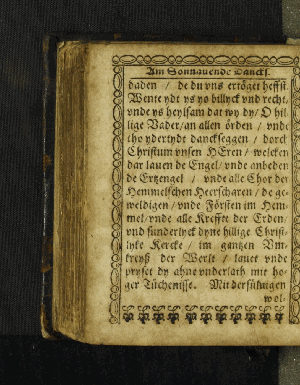 Am Sonnauende Danckf.
daden / de du vns ertöget heffst.
Wente ydt ys yo billyck vnd recht,
vnde ys heylsam dat wy dy / O hil-
lige Vader / an allen örden / vnde
tho ydertydt danckseggen / dorch
Christum vnsen HEren / welcken
dar lauen de Engel / vnde anbeden
de Ertzengel / vnde alle Chor der
Hemmelschen Heerscharen / de ge-
weldigen / vnde Försten im Hem-
mel / vnde alle Kreffte der Erden /
vnd sünderlyck dyne hillige Christ-
lyke Kercke / im gantzen Vm-
kreyß der Werlt / lauet vnde
pryset dy ahne vnderlath mit ho-
ger Tüchenisse. Mit der süluigen
wol-